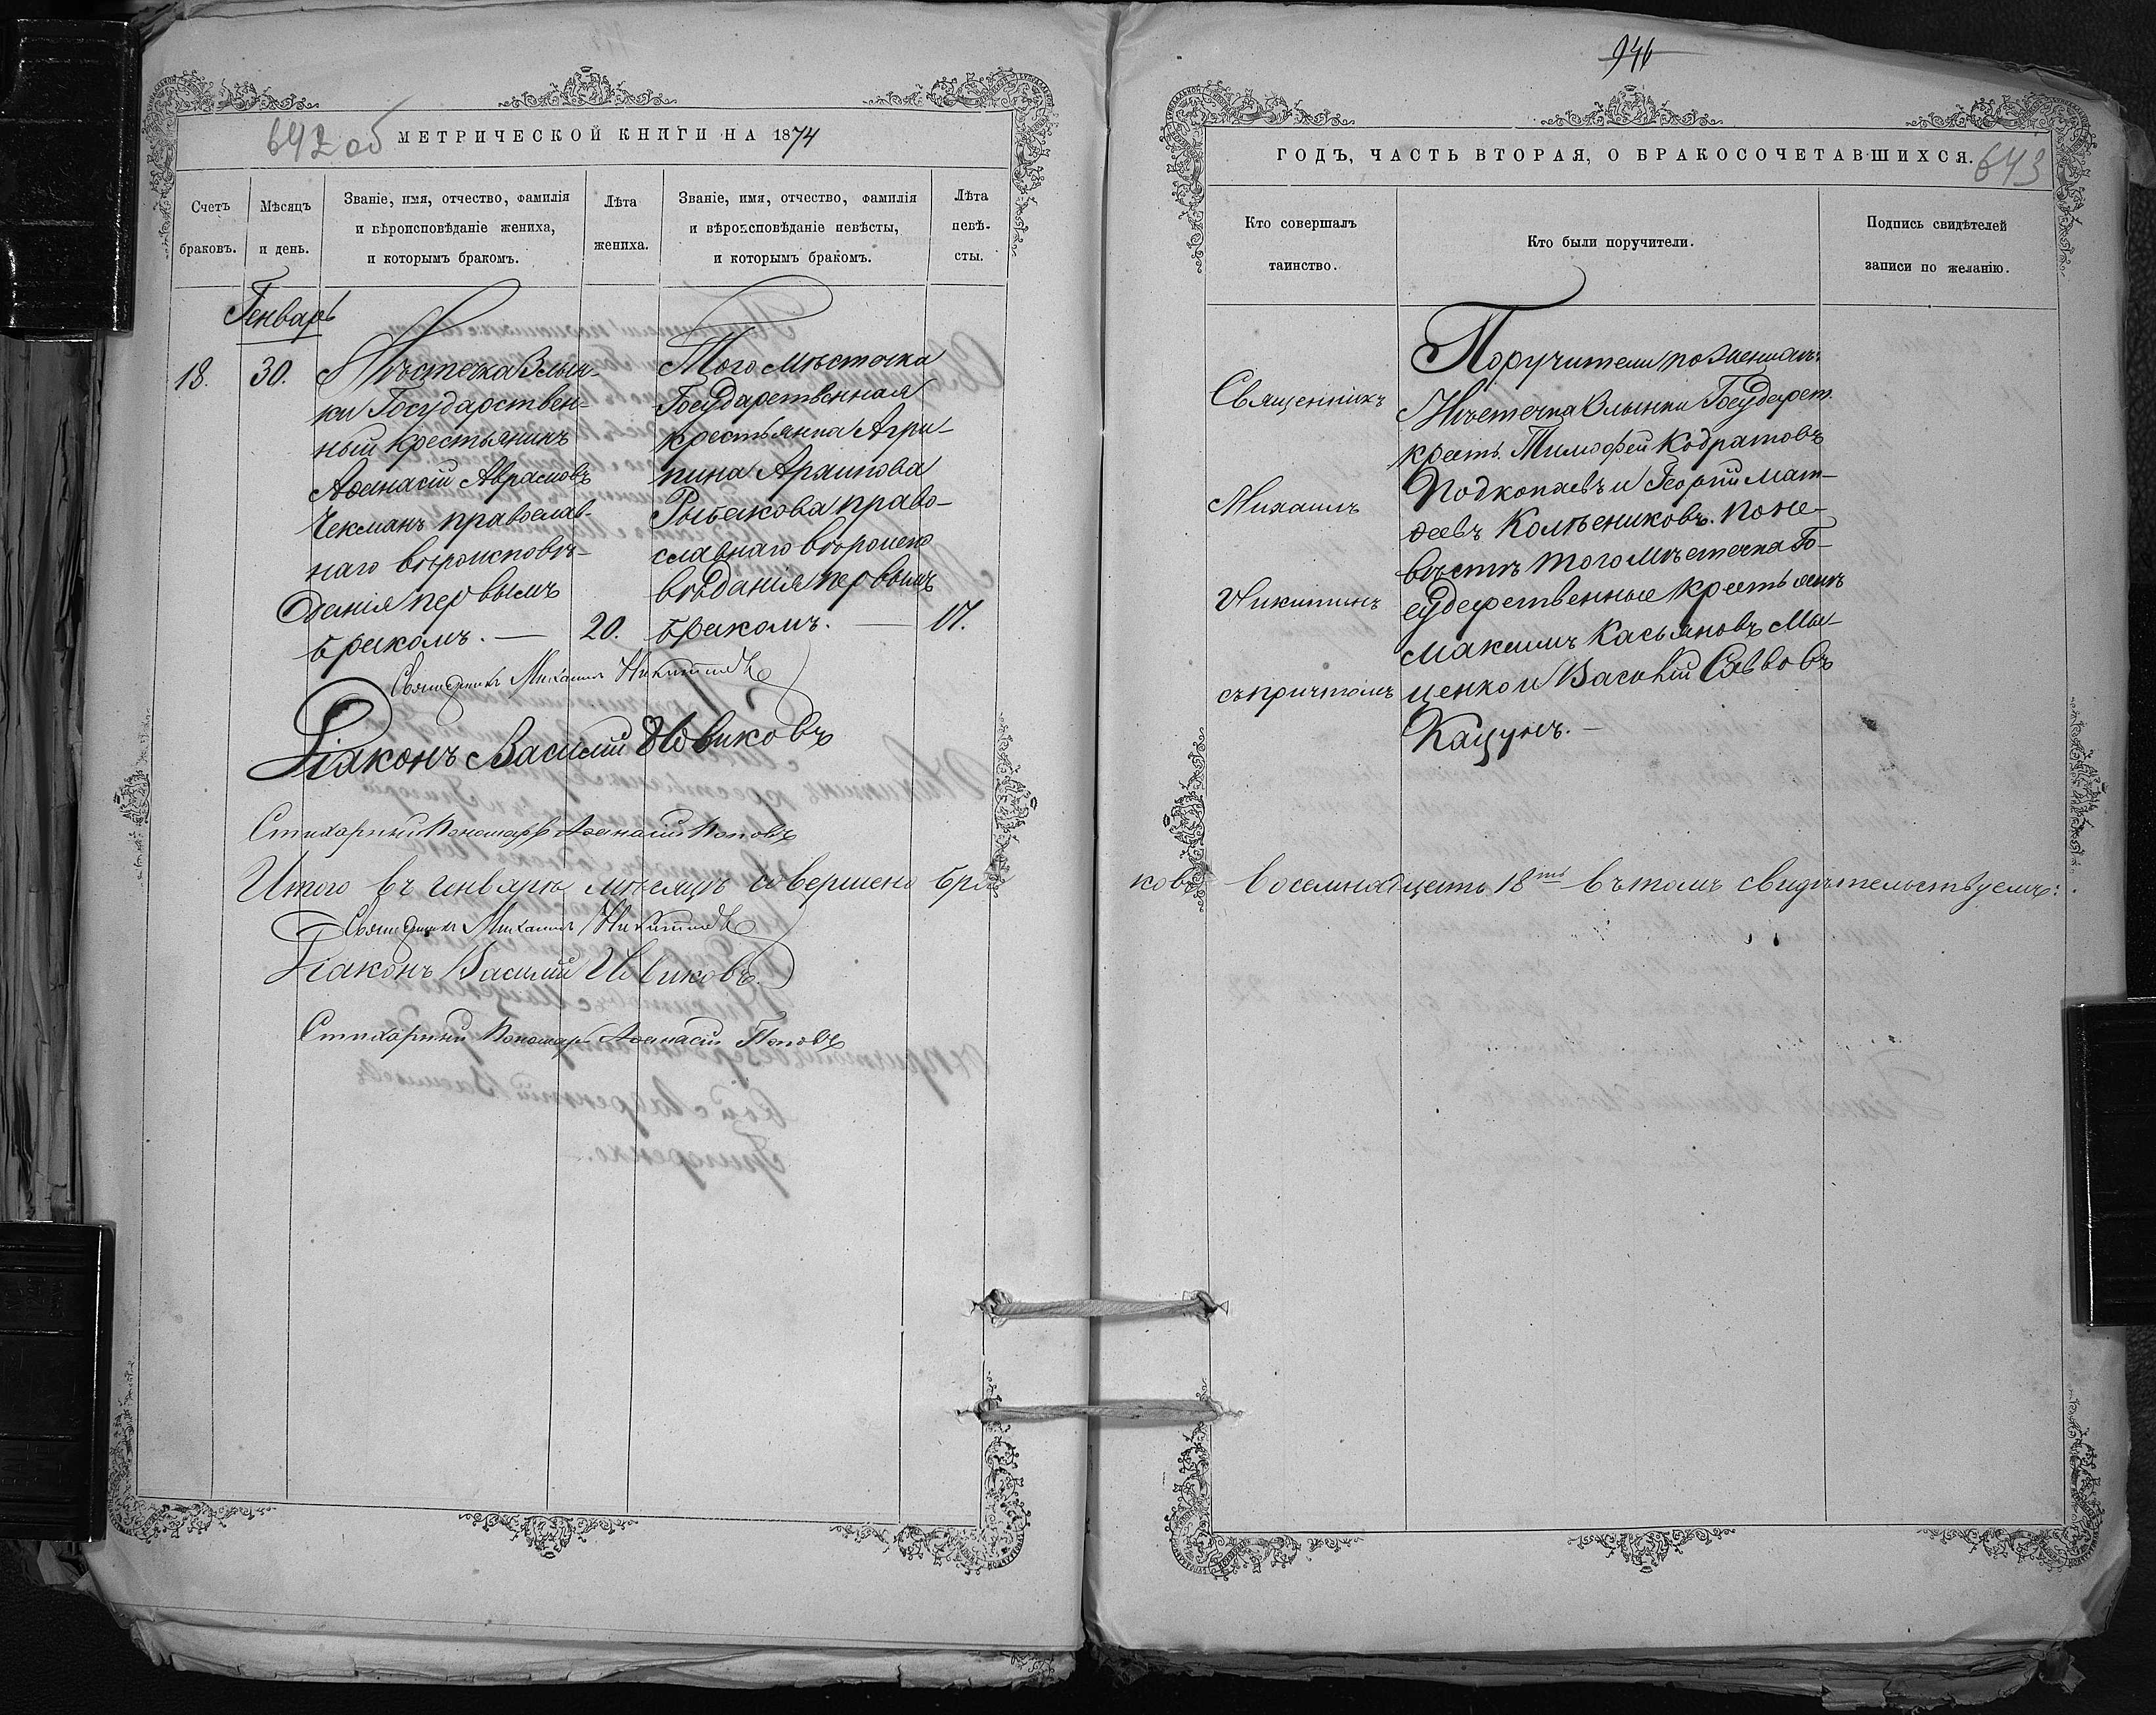 946
692 об
МЕТРИЧЕСКОЙ КНИГИ НА 1874
Счетъ браковъ.
Мѣсяцъ и день.
Званіе, имя, отчество, фамилія
и вѣроисповѣданіе жениха,
и которымъ бракомъ.
Лѣта жениха.
Званіе, имя, отчество, фамилія
и вѣроисповѣданіе невѣсты,
и которымъ бракомъ.
Лѣта невѣ-
сты.
Генварь
18.
30.
Мѣстечка Злын-
ки Государствен-
ный крестьянинъ
Аѳанасій Аврамовъ
Чекманъ православ-
наго вѣроисповѣ-
данія первымъ
бракомъ. —
20.
Того мѣстечка
Государственная
крестьянка Агри-
пина Архипова
Рыбакова право-
славнаго вѣроиспо
вѣданія первымъ
бракомъ. —
17.
Священникъ Михаилъ Никитинъ
Діаконъ Василій Новиковъ
Стихарный Пономарь Аѳанасій Поповъ
Итого въ январѣ мѣсяцѣ совершено бра
Священникъ Михаилъ Никитинъ
Діаконъ Василій Новиковъ.
Стихарный Пономарь Аѳанасій Поповъ
ГОДЪ, ЧАСТЬ ВТОРАЯ, О БРАКОСОЧЕТАВШИХСЯ.
643
Кто совершалъ
таинство.
Кто были поручители.
Подпись свидѣтелей
записи по желанію.
Священникъ
Михаилъ
Никитинъ
съ причтомъ
Поручители по женихѣ:
Мѣстечка Злынки Государст.
крест. Тимофей Кодратовъ
Подкопаевъ и Георгій Мат-
ѳеевъ Колѣсниковъ. по не-
вѣстѣ того мѣстечка Го-
сударственные крестьяне
Максимъ Касьяновъ Мы-
ценко и Василій Савовъ
Кацунъ. —
ковъ восемнадцать 18ть въ томъ свидѣтельствуемъ: